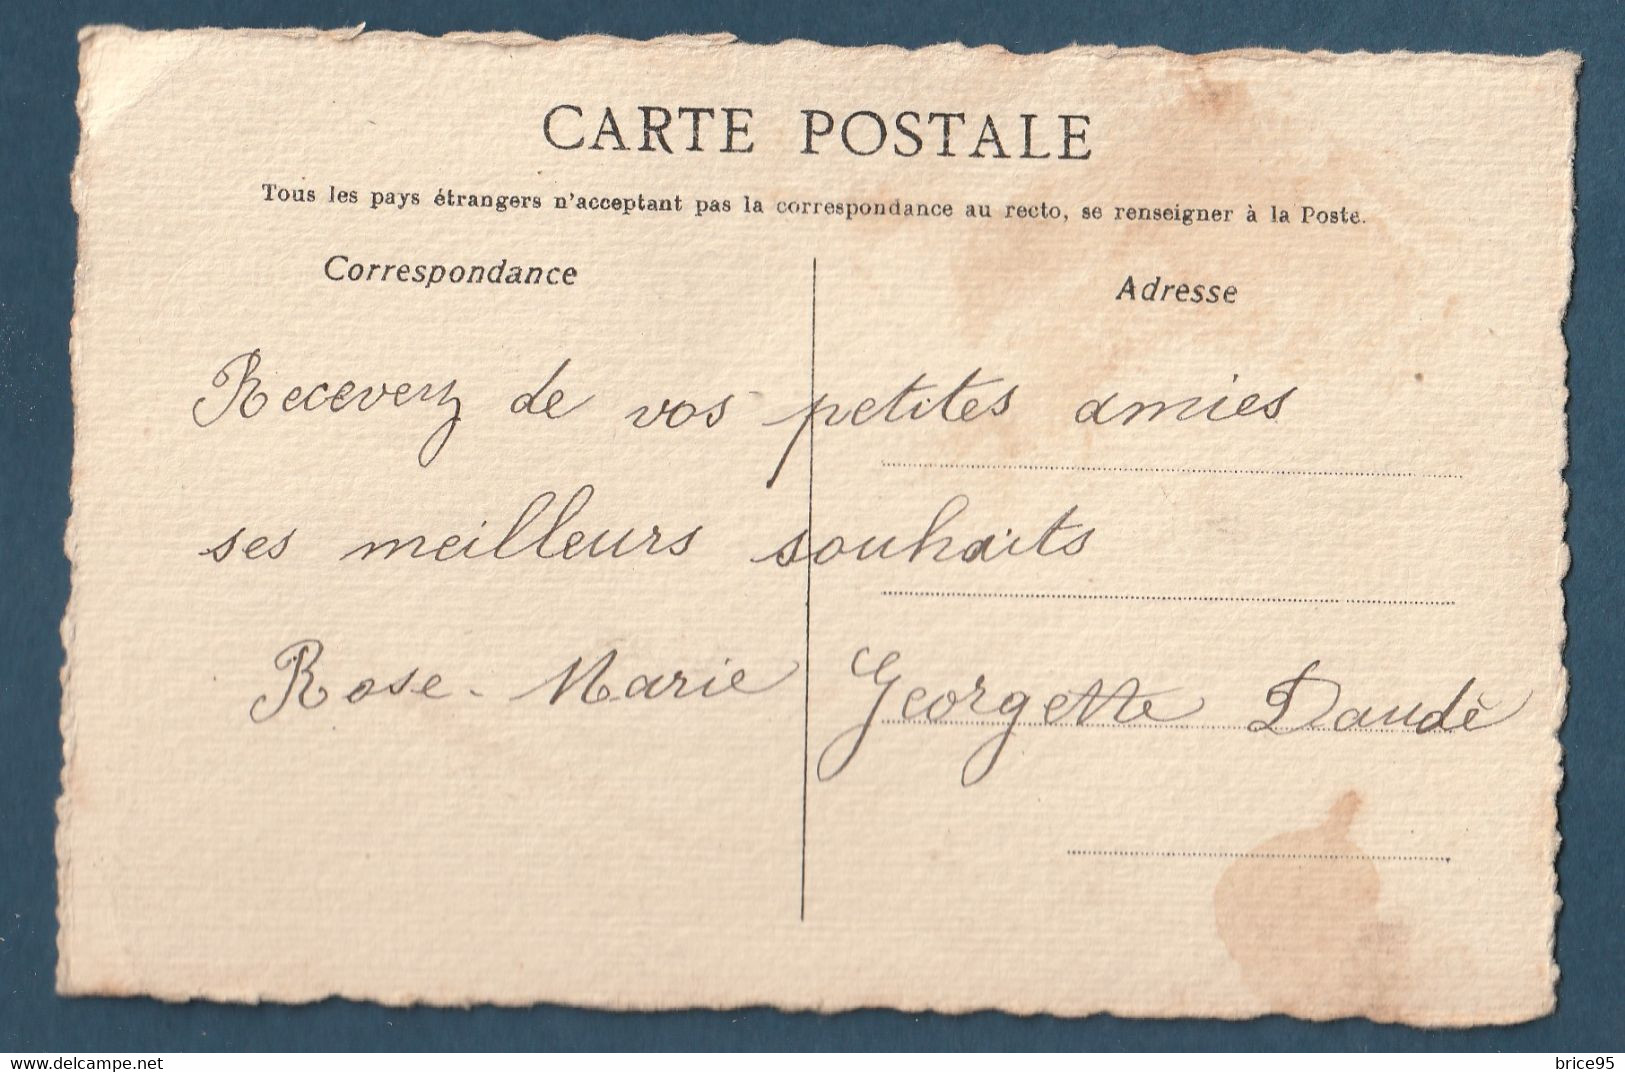 CARTE POSTALE
Tous les pays étrangers n'acceptant pas la correspondance au recto, se renseigner à la Poste.
Correspondance
Adresse
Recevez de vos petites amies
ses meilleurs souhaits
Rose-Marie Georgette Daudè
delcampe.net
brice95